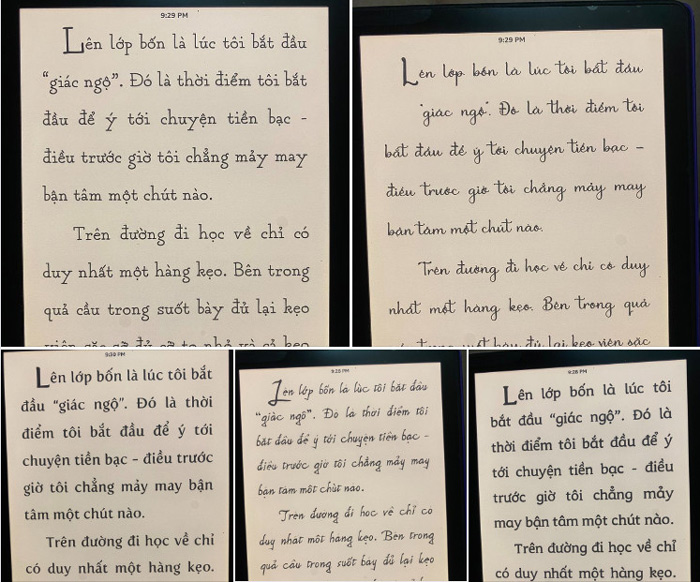 9:29 PM
Lên lớp bốn là lúc tôi bắt đầu
“giác ngộ”. Đó là thời điểm tôi bắt
đầu để ý tới chuyện tiền bạc -
điều trước giờ tôi chẳng mảy may
bận tâm một chút nào.
Trên đường đi học về chỉ có
duy nhất một hàng kẹo. Bên trong
quả cầu trong suốt bày đủ lại kẹo
9:29 PM
Lên lớp bốn là lúc tôi bắt đầu
“giác ngộ”. Đó là thời điểm tôi
bắt đầu để ý tới chuyện tiền bạc -
điều trước giờ tôi chẳng mảy may
bận tâm một chút nào.
Trên đường đi học về chỉ có duy
nhất một hàng kẹo. Bên trong quả
9:30 PM
Lên lớp bốn là lúc tôi bắt
đầu “giác ngộ”. Đó là thời
điểm tôi bắt đầu để ý tới
chuyện tiền bạc - điều trước
giờ tôi chẳng mảy may bận
tâm một chút nào.
Trên đường đi học về chỉ
có duy nhất một hàng kẹo.
9:28 PM
Lên lớp bốn là lúc tôi bắt đầu
“giác ngộ”. Đó là thời điểm tôi
bắt đầu để ý tới chuyện tiền bạc -
điều trước giờ tôi chẳng mảy may
bận tâm một chút nào.
Trên đường đi học về chỉ có
duy nhất một hàng kẹo. Bên trong
quả cầu trong suốt bày đủ lại kẹo
9:28 PM
Lên lớp bốn là lúc tôi
bắt đầu “giác ngộ”. Đó là
thời điểm tôi bắt đầu để ý
tới chuyện tiền bạc - điều
trước giờ tôi chẳng mảy
may bận tâm một chút nào.
Trên đường đi học về chỉ
có duy nhất một hàng kẹo.